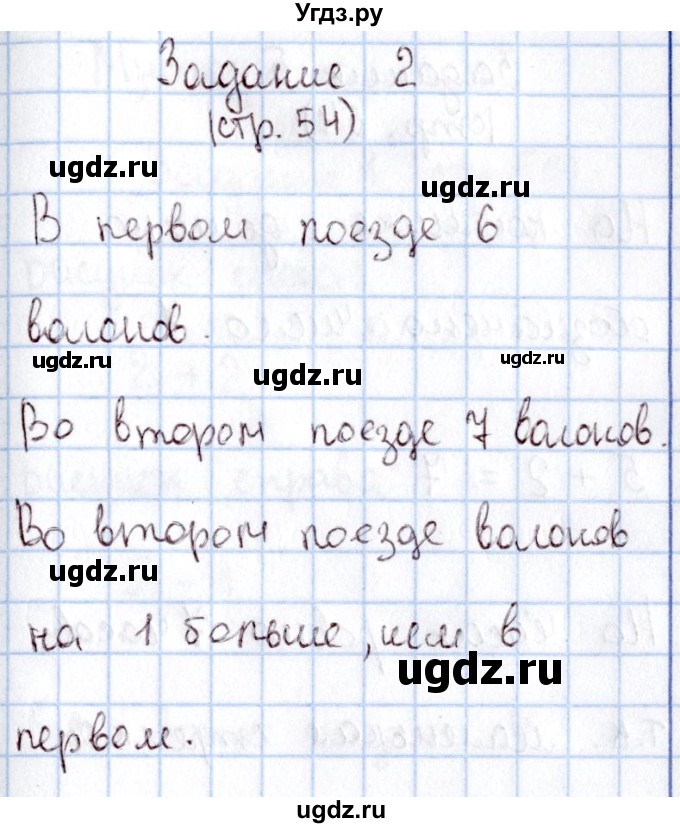 Угдз.ру
Задание 2
(стр. 54)
ugdz.ru
ugdz.ru
В первом поезде 6
вагонов.
ugdz.ru
ugdz.ru
ugdz.ru
Во втором поезде 7 вагонов.
Во втором поезде вагонов
ugdz.ru
на 1 больше, чем в
ugdz.ru
первом.
ugdz.ru